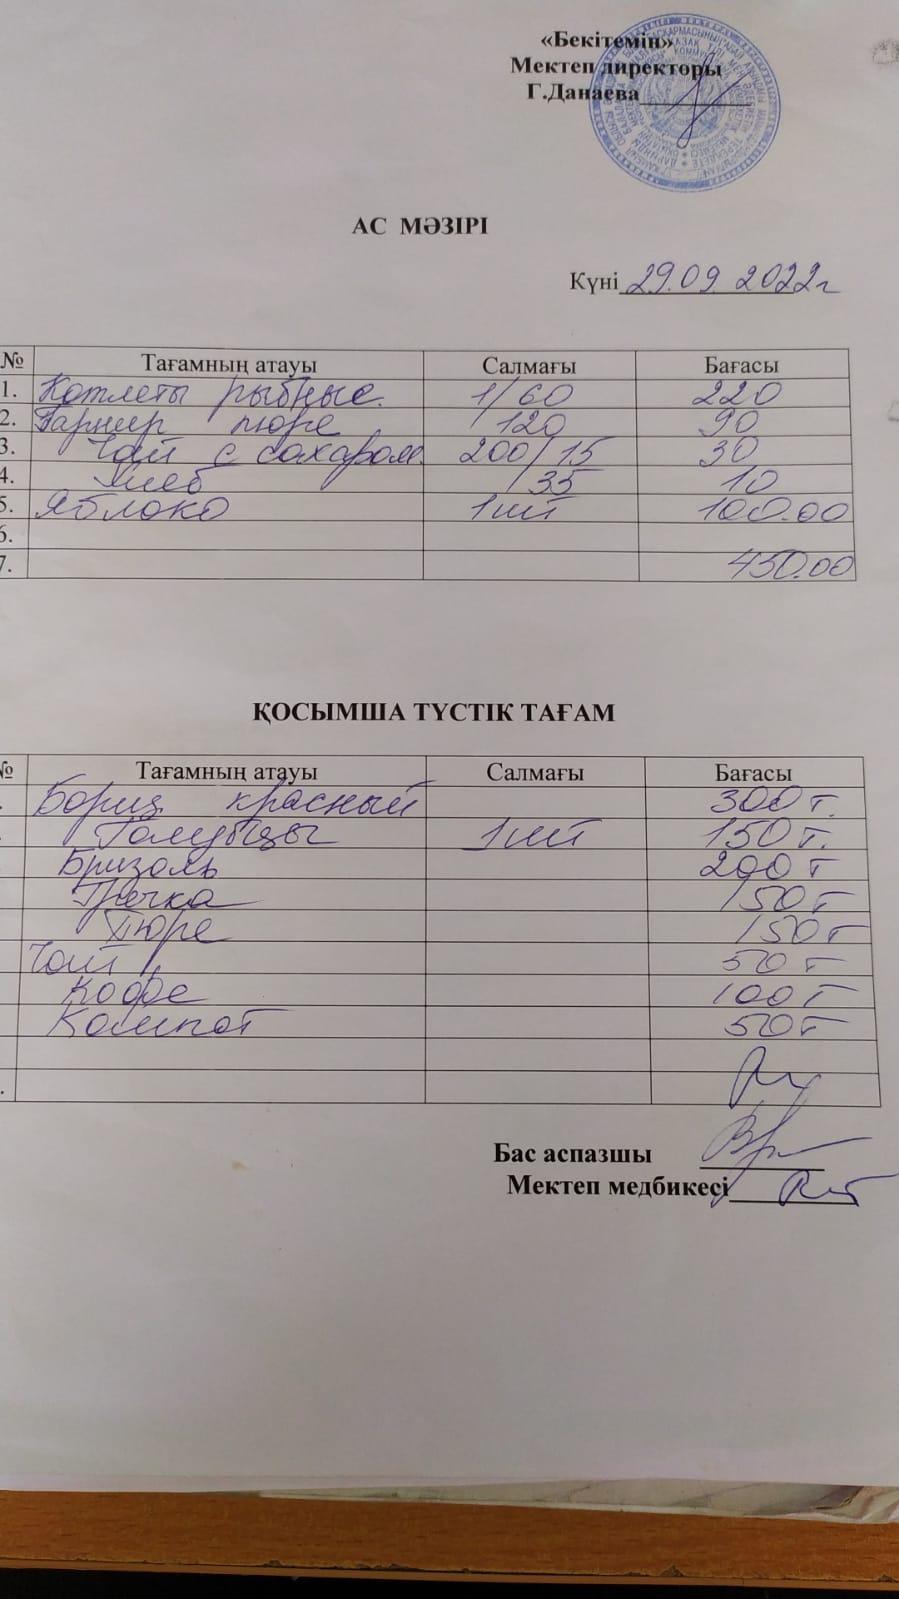 «Бекітемін»
Мектеп директоры
Г.Данаева
АС МӘЗІРІ
Күні 29.09.2022г
№ Тағамның атауы Салмағы Бағасы
1. Котлеты рыбные. 1/60 220
2. Гарнир пюре 120 90
3. Чай с сахаром 200/15 30
4. Хлеб /35 10
5. Яблоко 1шт 100.00
6.
7. 450.00
ҚОСЫМША ТҮСТІК ТАҒАМ
№ Тағамның атауы Салмағы Бағасы
Борщ красный 300 т.
Голубцы 1шт 150 т.
Бризоль 200 т
Гречка 150 т
Пюре 150 т
Чай 50 т
Кофе 100 т
Компот 50 т
Бас аспазшы
Мектеп медбикесі